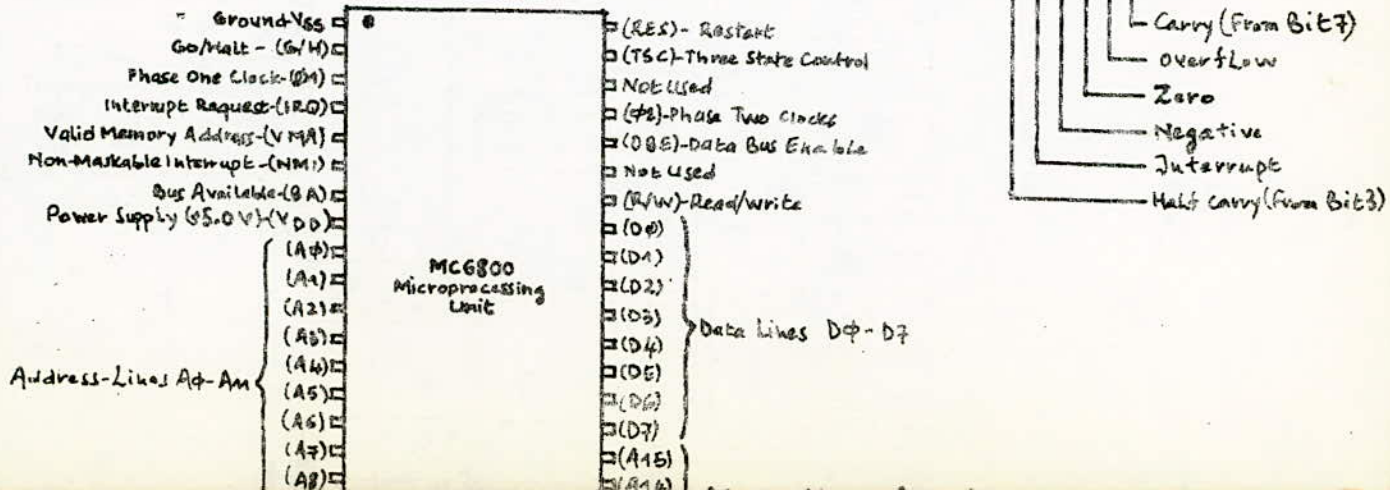 Ground-VSS
Go/Halt - (G/H)
Phase One Clock-(Ø1)
Interrupt Request-(IRQ)
Valid Memory Address-(VMA)
Non-Maskable Interrupt-(NMI)
Bus Available-(BA)
Power Supply (+5.0 V)-(VDD)
(AØ)
(A1)
(A2)
(A3)
(A4)
(A5)
(A6)
(A7)
(A8)
Address-Lines AØ-A11
MC6800
Microprocessing
Unit
(RES)- Restart
(TSC)-Three State Control
Not Used
(Ø2)-Phase Two Clocks
(DBE)-Data Bus Enable
Not Used
(R/W)-Read/Write
(DØ)
(D1)
(D2)
(D3)
(D4)
(D5)
(D6)
(D7)
Data Lines DØ-D7
(A15)
(A14)
Carry (From Bit7)
Overflow
Zero
Negative
Interrupt
Half Carry (From Bit3)